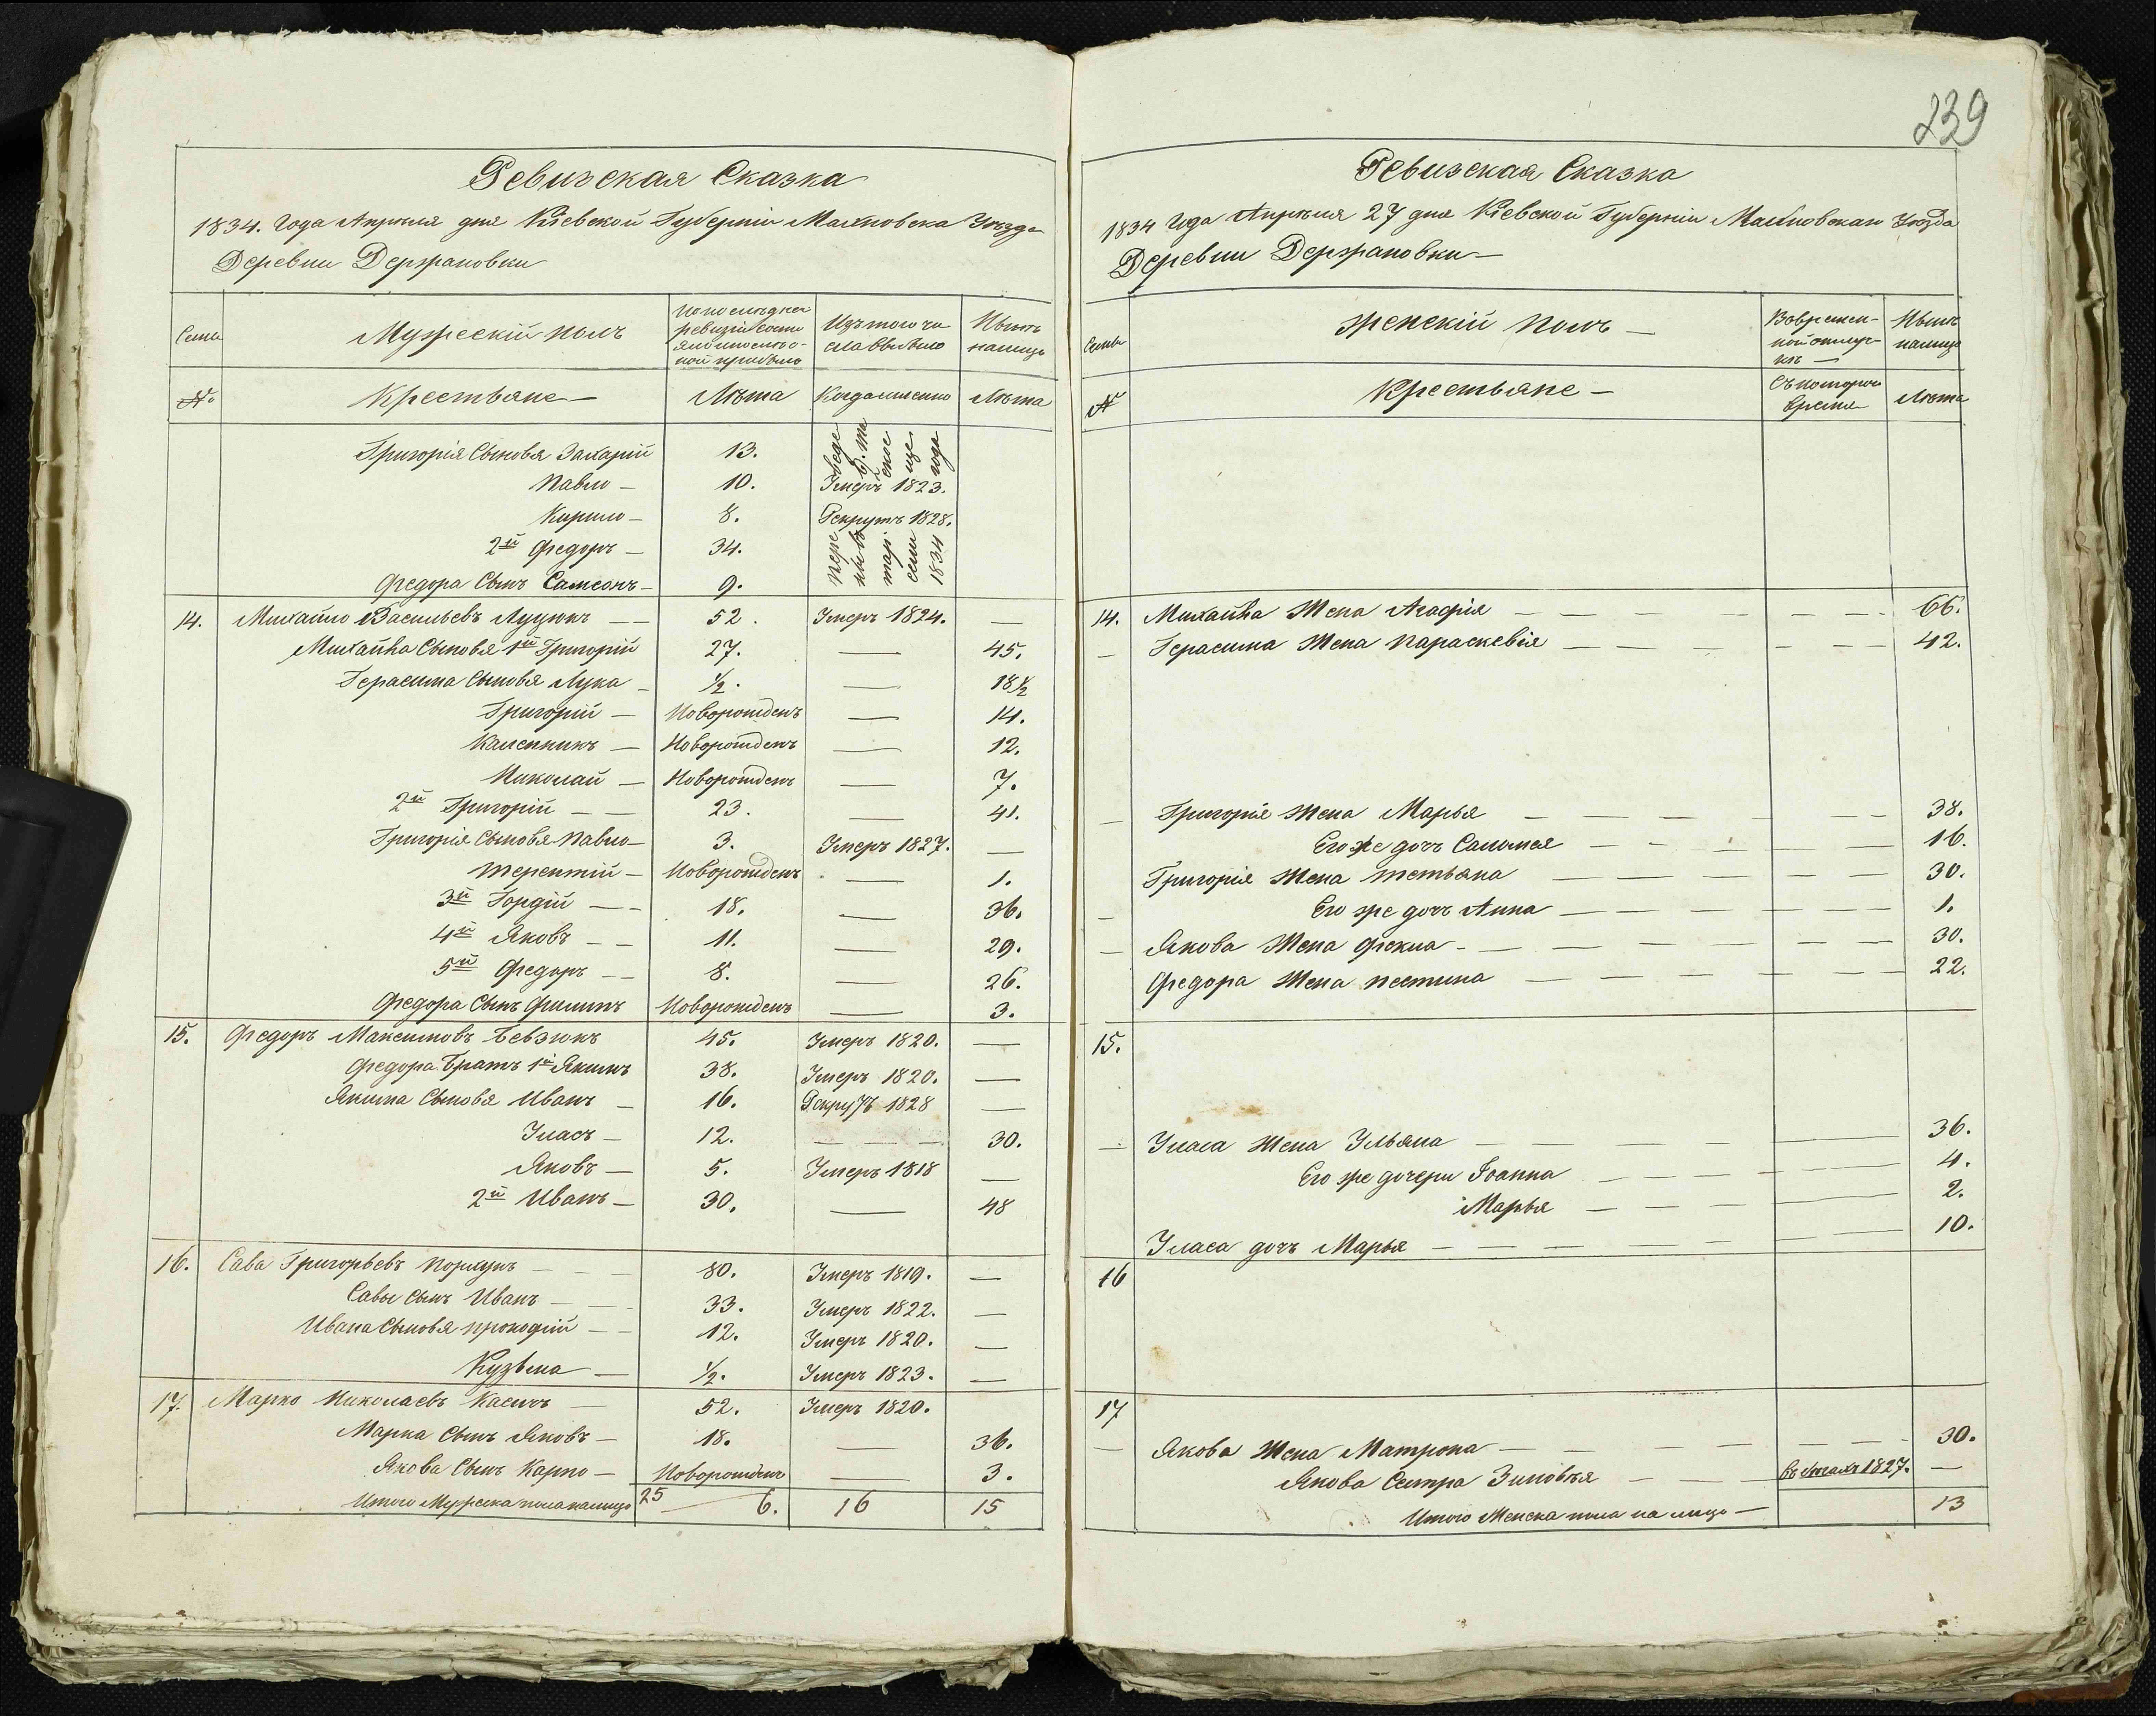 239
Ревизская Сказка
1834. Года Апреля дня Кіевской Губерніи Махновска Уезда
Деревни Держановки
Семьи
Мужескій полъ
По последней ревизіи состояло и после оной прибыло
Изъ того числа выбыло
Ныне налицо
№
Крестьяне —
Лета
Когда именно
Лета
Григорія Сыновья Захарій 13.
Павло — 10. Умеръ 1823.
Кирило — 8. Рекрутъ 1828.
2й Федоръ — 34.
Федора Сынъ Самсонъ — 9.
14. Михайло Васильевъ Луцюкъ — — 52. Умеръ 1824. —
Михайла Сыновья 1й Григорій 27. — 45.
Герасима Сыновья Лука — ½. — 18½
Григорій — Новорожденъ — 14.
Каленникъ — Новорожденъ — 12.
Николай — Новорожденъ — 7.
2й Григорій — — 23. — 41.
Григорія Сыновья Павло — 3. Умеръ 1827. —
Терентій — Новорожденъ — 1.
3й Гордій — — 18. — 36.
4й Яковъ — — 11. — 29.
5й Федоръ — — 8. — 26.
Федора Сынъ Филипъ Новорожденъ — 3.
15. Федоръ Максимовъ Бевзюкъ 45. Умеръ 1820. —
Федора Братъ 1й Якимъ 38. Умеръ 1820. —
Якима Сыновья Иванъ — 16. Рекрутъ 1828 —
Уласъ — 12. — — — 30.
Яковъ — 5. Умеръ 1818 —
2й Иванъ — 30. — 48
16. Сава Григорьевъ — — — 80. Умеръ 1819. —
Савы Сынъ Иванъ — — 33. Умеръ 1822. —
Ивана Сыновья Прокофій — — 12. Умеръ 1820. —
Кузьма — ½. Умеръ 1823. —
17. Марко Николаевъ — 52. Умеръ 1820.
Марка Сынъ Яковъ — 18. — 36.
Якова Сынъ Карпо — Новорожденъ — 3.
Итого Мужеска пола налицо 25 — 6. 16 15
Ревизская Сказка
1834 Года Апреля 27 дня Кіевской Губерніи Махновскаго Уезда
Деревни Держановки —
Семьи
Женскій полъ —
Во временной отлучке —
Ныне налицо
№
Крестьяне —
Съ котораго времени
Лета
14. Михайла Жена Агафія — — — — — 66.
— Герасима Жена Параскевія — — — — — — 42.
— Григорія Жена Марья — — — — — — 38.
Его же дочь Саломея — — — — — 16.
Григорія Жена Тетьяна — — — — — 30.
— Его же дочь Анна — — — — — — 1.
— Якова Жена Фекла — — — — — — 30.
Федора Жена — — — — — — 22.
15.
— Уласа Жена Ульяна — — — — — 36.
Его же дочери Іоанна — — — — — 4.
Марья — — — — 2.
Уласа дочь Марья — — — — — — 10.
16
17
— Якова Жена Матрона — — — — — — 30.
Якова Сестра Зиновія — — въ бегахъ 1827. —
Итого Женска пола на лицо — 13